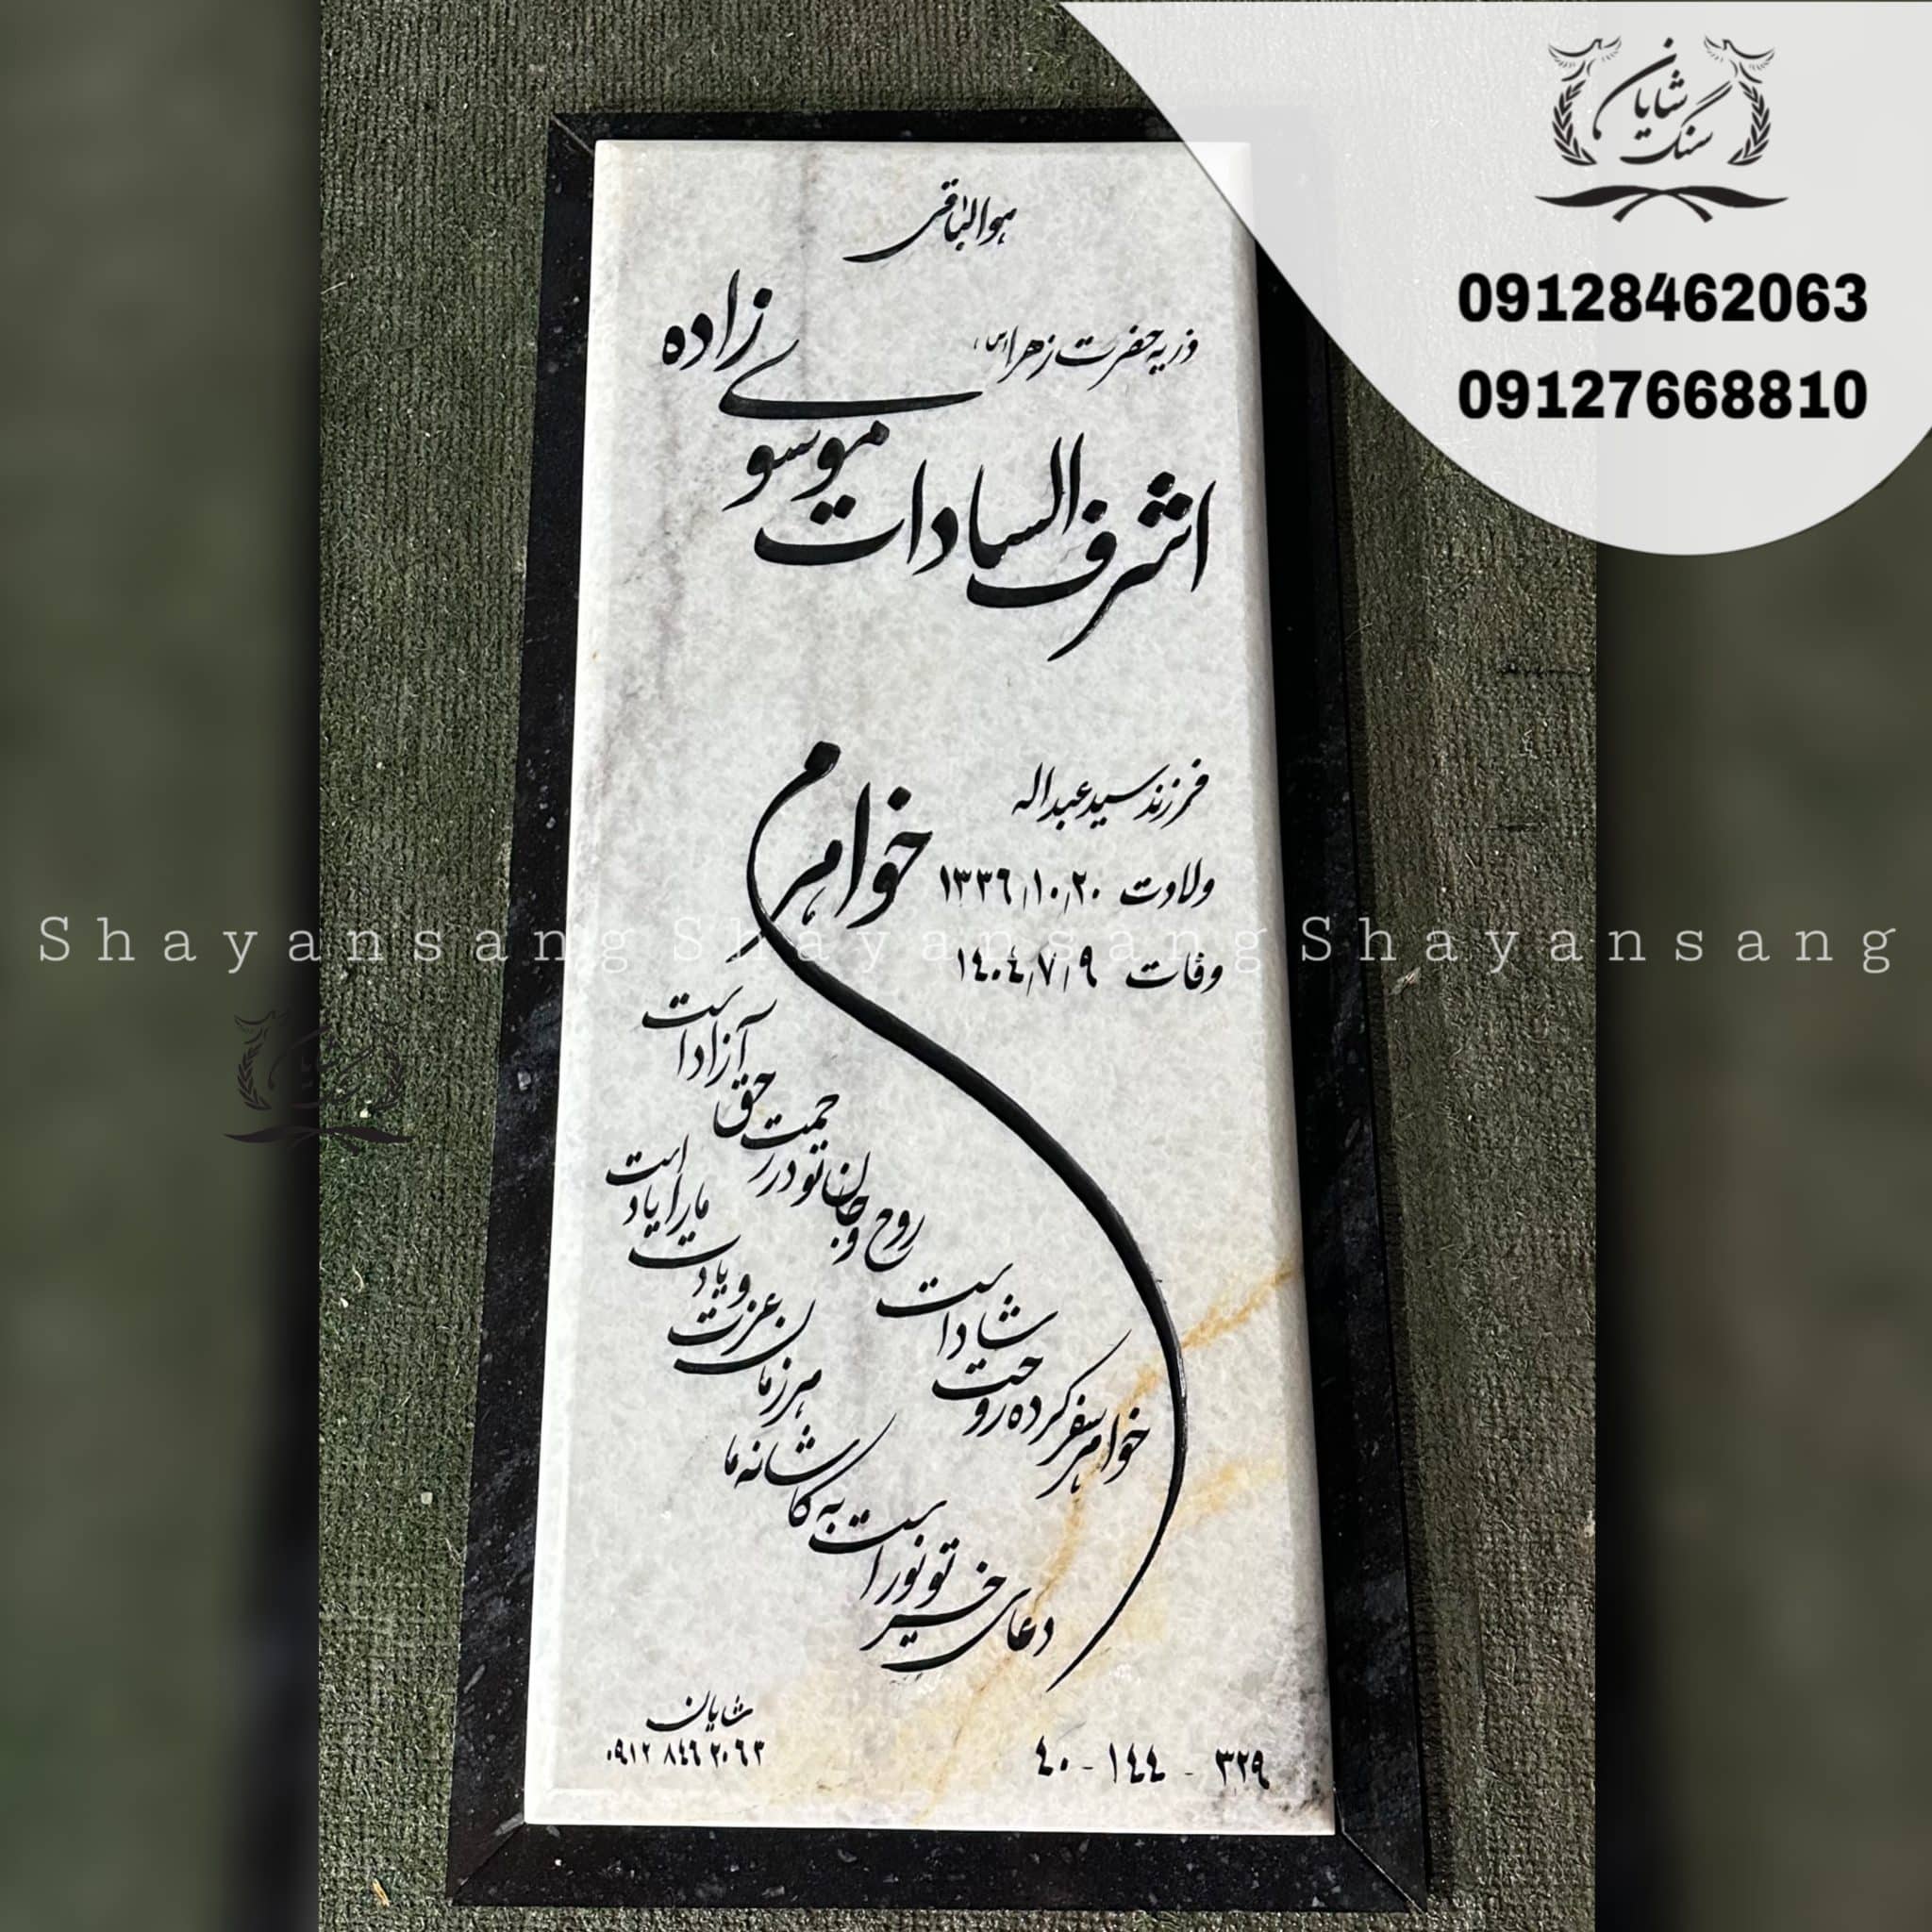 شایان سنگ
09128462063
09127668810
هوالباقی
ذریه حضرت زهرا (س)
اشرف السادات موسوی زاده
فرزند سید عبداله
ولادت ۱۳۳۶/۱۰/۲۰
وفات ۱۴۰۴/۷/۹
خواهرم
خواهر سفر کرده روحت شاد است
روح و جان تو در رحمت حق آزاد است
دعای خیر تو نور است به کاشانه ما
هر زمان عزت و یادت ما را یاد است
شایان
۰۹۱۲ ۸۴۶ ۲۰۶۳
۳۲۹ - ۱۴۴ - ۴۰
Shayansang Shayansang Shayansang